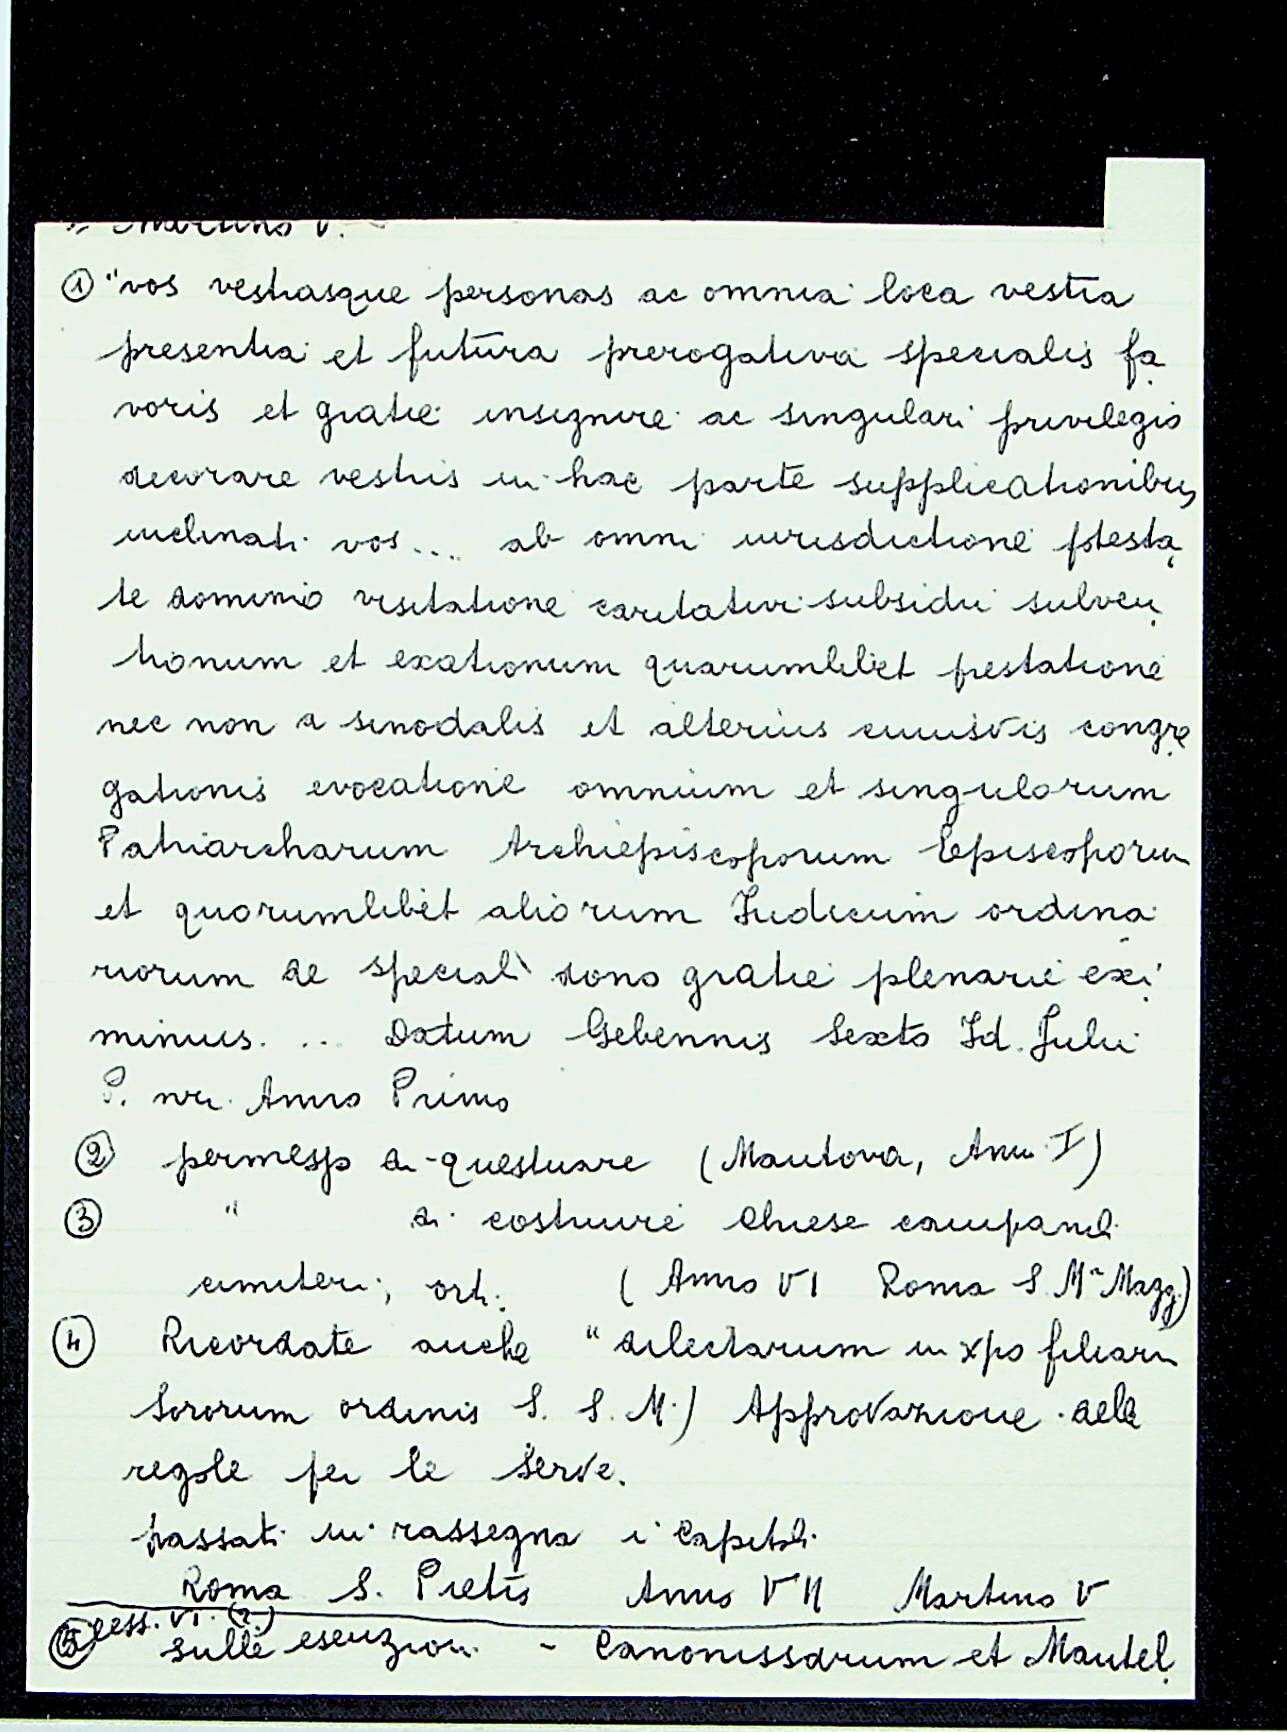 Martino V.
① "vos vestrasque personas ac omnia loca vestra
presentia et futura prerogativa specialis fa
voris et gratie insignire ac singulari privilegio
decorare vestris in hac parte supplicationibus
inclinati vos.... ab omni iurisdictione potesta
te dominio visitatione caritativi subsidii subven
tionum et exationum quarumlibet prestatione
nec non a sinodalis et alterius cuiusvis congre
gationis evocatione omnium et singulorum
Patriarcharum Archiepiscoporum Episcoporum
et quorumlibet aliorum Iudicum ordina
riorum de speciali dono gratie plenarie exi
mimus. ... Datum Gebennis Sexto Id. Julii
P. nri. Anno Primo
② permesso di questuare (Mantova, Anno I)
③ " di costruire Chiese campanili
cimiteri, orti. (Anno VI Roma S. Mª Magg.)
④ Ricordate anche "dilectarum in xpo filiarum
Sororum ordinis S. S. M.) Approvazione delle
regole per le Serve.
passati in rassegna i Capitoli
Roma S. Pietro Anno VII Martino V
⑤ sulle esenzioni - Canonissarum et Mantel